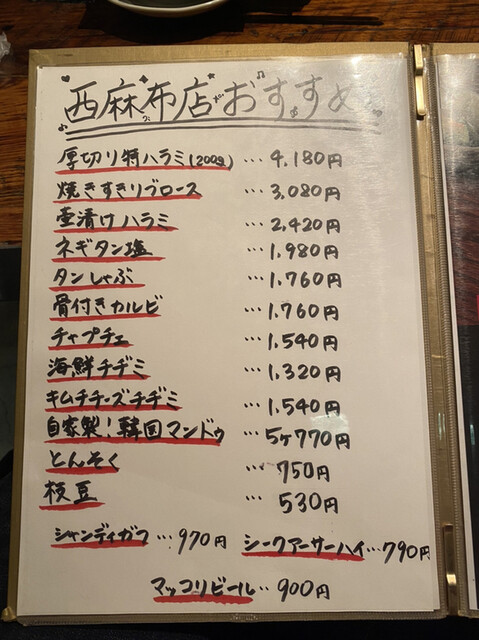 西麻布店おすすめ
厚切り特ハラミ(200g) … 4,180円
焼きすきリブロース … 3,080円
壺漬けハラミ … 2,420円
ネギタン塩 … 1,980円
タンしゃぶ … 1,760円
骨付きカルビ … 1,760円
チャプチェ … 1,540円
海鮮チヂミ … 1,320円
キムチチーズチヂミ … 1,540円
自家製!韓国マンドゥ … 5ヶ770円
とんそく … 750円
枝豆 … 530円
シャンディガフ … 970円 シークアーサーハイ … 790円
マッコリビール … 900円